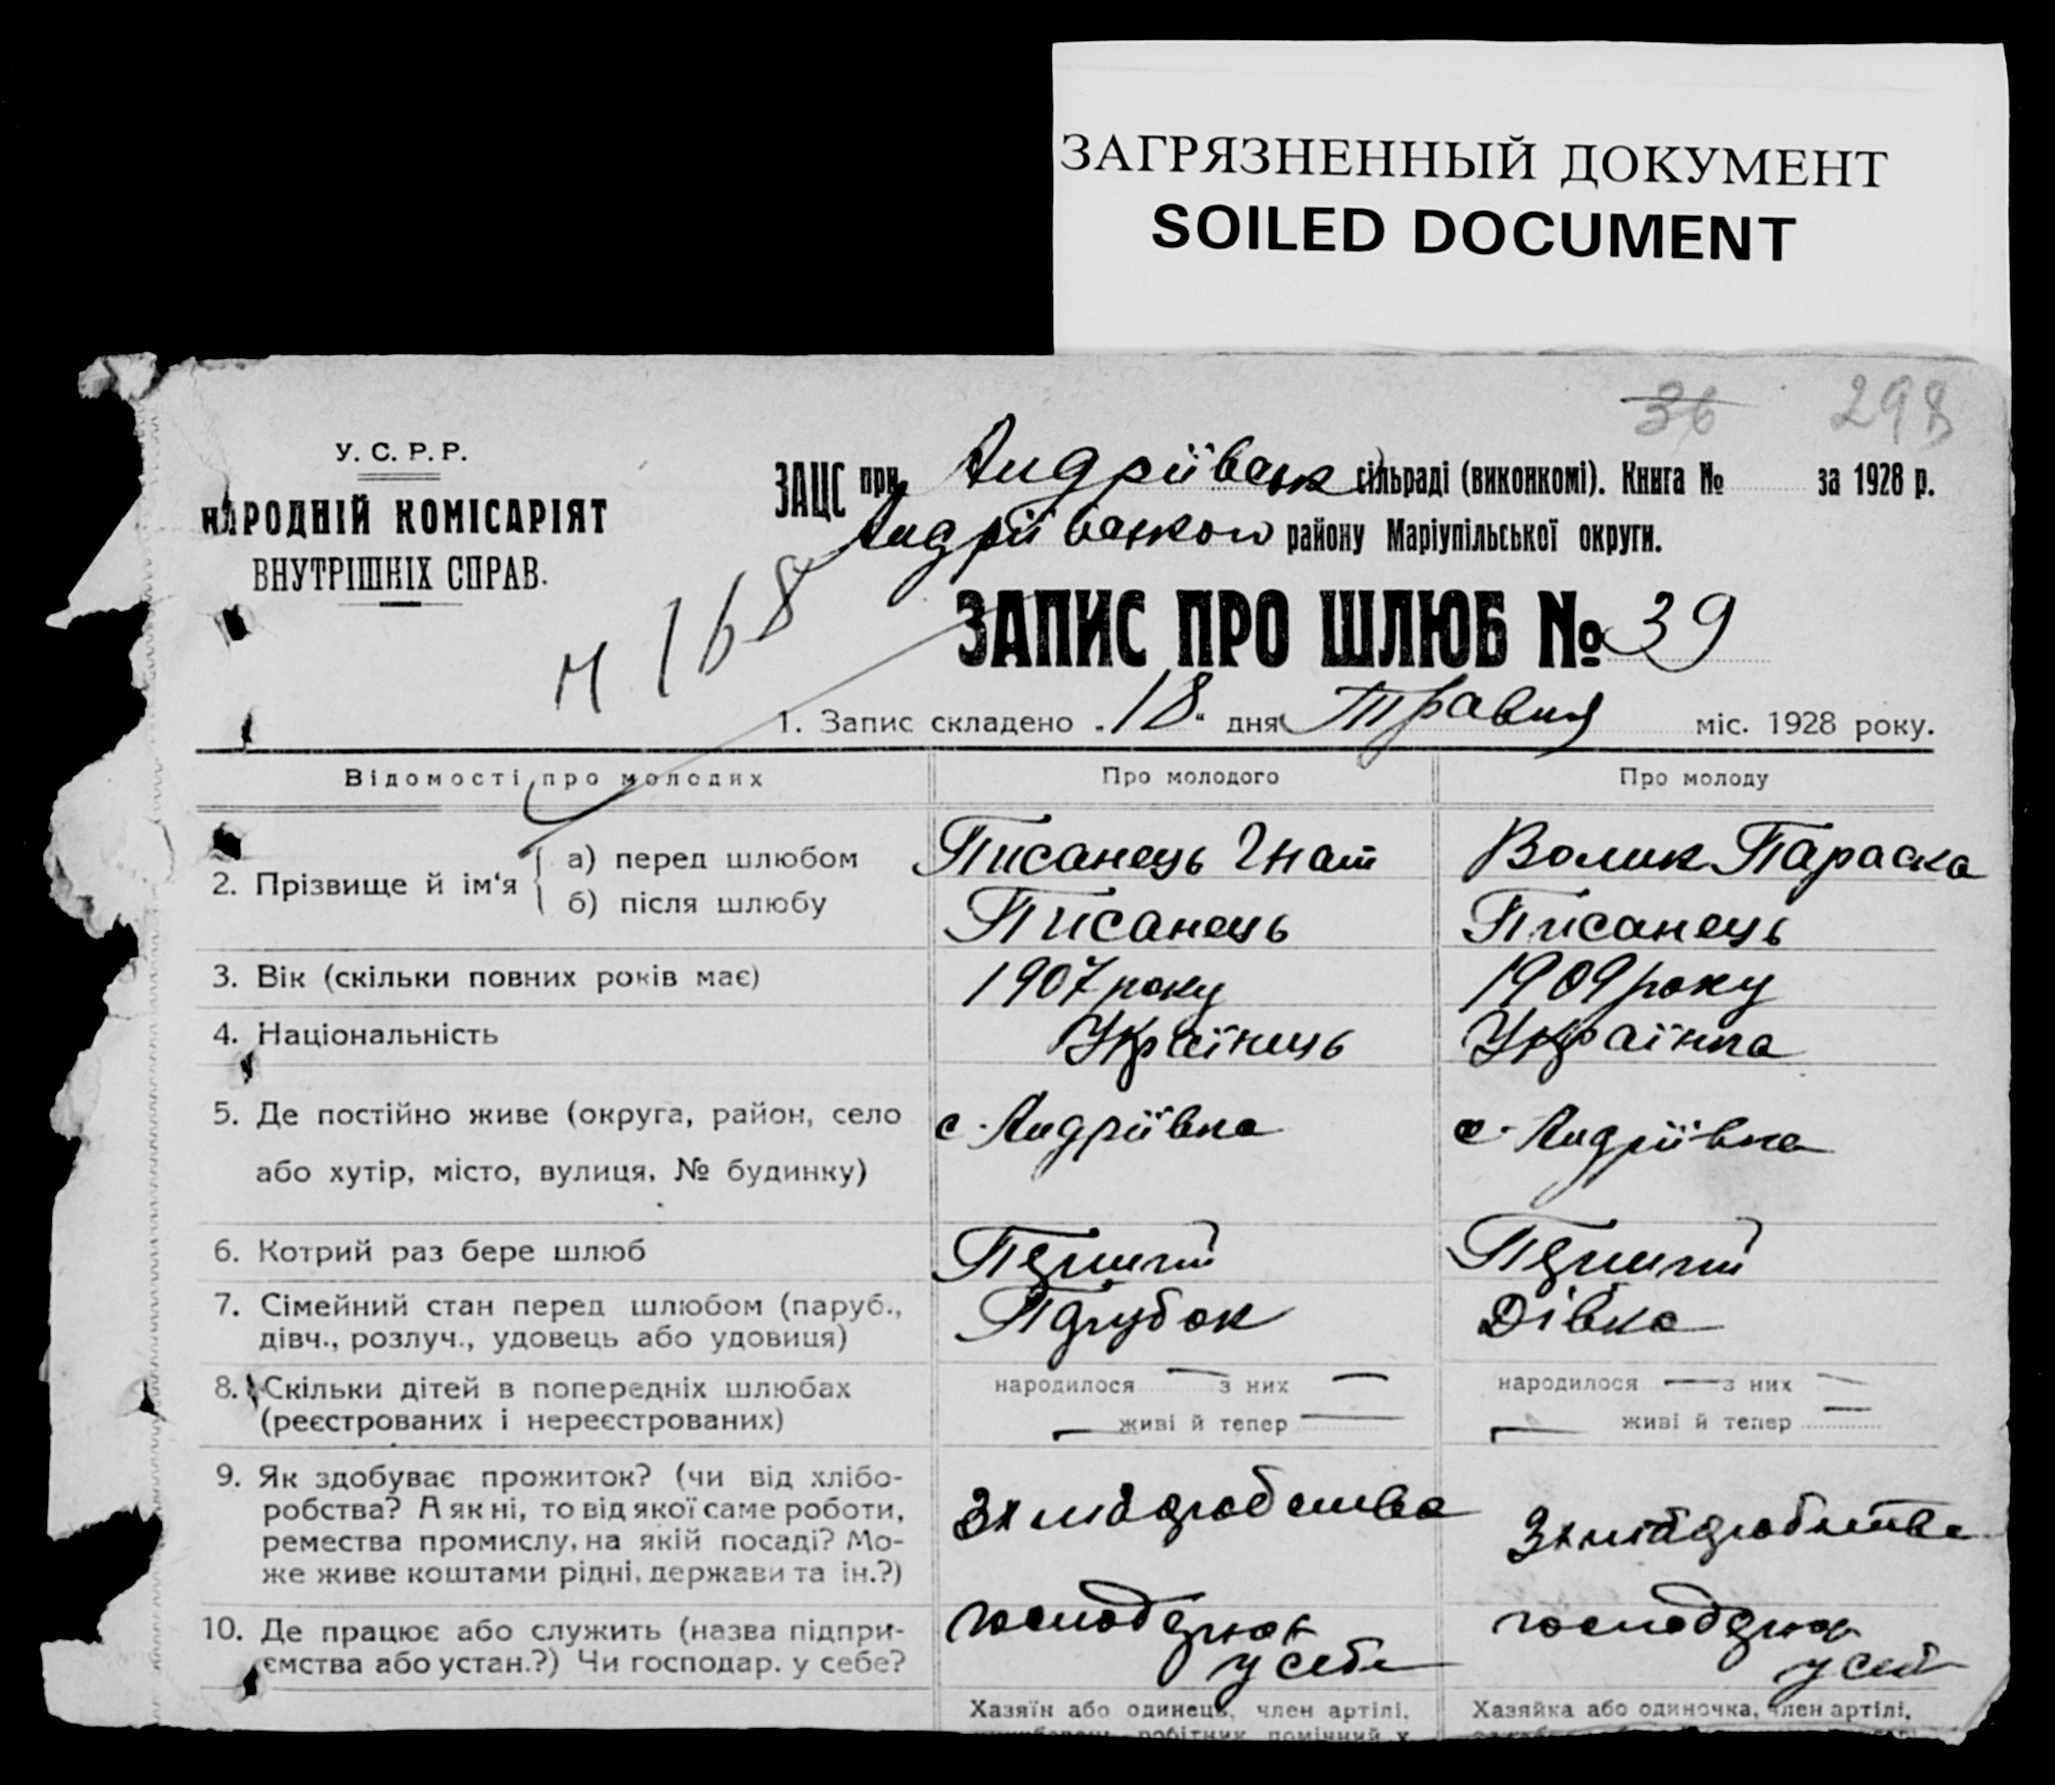 ЗАГРЯЗНЕННЫЙ ДОКУМЕНТ
SOILED DOCUMENT
36 298
У. С. Р. Р.
НАРОДНІЙ КОМІСАРІЯТ
ВНУТРІШНІХ СПРАВ.
ЗАЦС при Андріївськ сільраді (виконкомі). Книга № за 1928 р.
Андріївського району Маріупільської округи.
168
ЗАПИС ПРО ШЛЮБ № 39
1. Запис складено "18" дня Травня міс. 1928 року.
Відомості про молодих Про молодого Про молоду
2. Прізвище й ім'я { а) перед шлюбом Писанець Гнат Волик Параска
б) після шлюбу Писанець Писанець
3. Вік (скільки повних років має) 1907 року 1909 року
4. Національність Українець Українка
5. Де постійно живе (округа, район, село с. Андріївка с. Андріївка
або хутір, місто, вулиця, № будинку)
6. Котрий раз бере шлюб Перший Перший
7. Сімейний стан перед шлюбом (паруб., Парубок Дівка
дівч., розлуч., удовець або удовиця)
8. Скільки дітей в попередніх шлюбах народилося — з них — народилося — з них —
(реєстрованих і нереєстрованих) — живі й тепер — — живі й тепер —
9. Як здобуває прожиток? (чи від хлібо-
робства? А як ні, то від якої саме роботи, З хліборобства З хліборобства
ремества промислу, на якій посаді? Мо-
же живе коштами рідні, держави та ін.?)
10. Де працює або служить (назва підпри-
ємства або устан.?) Чи господар. у себе? у себе у себе
Хазяїн або одинець, член артілі, Хазяйка або одиночка, член артілі,
робітник, помічний х